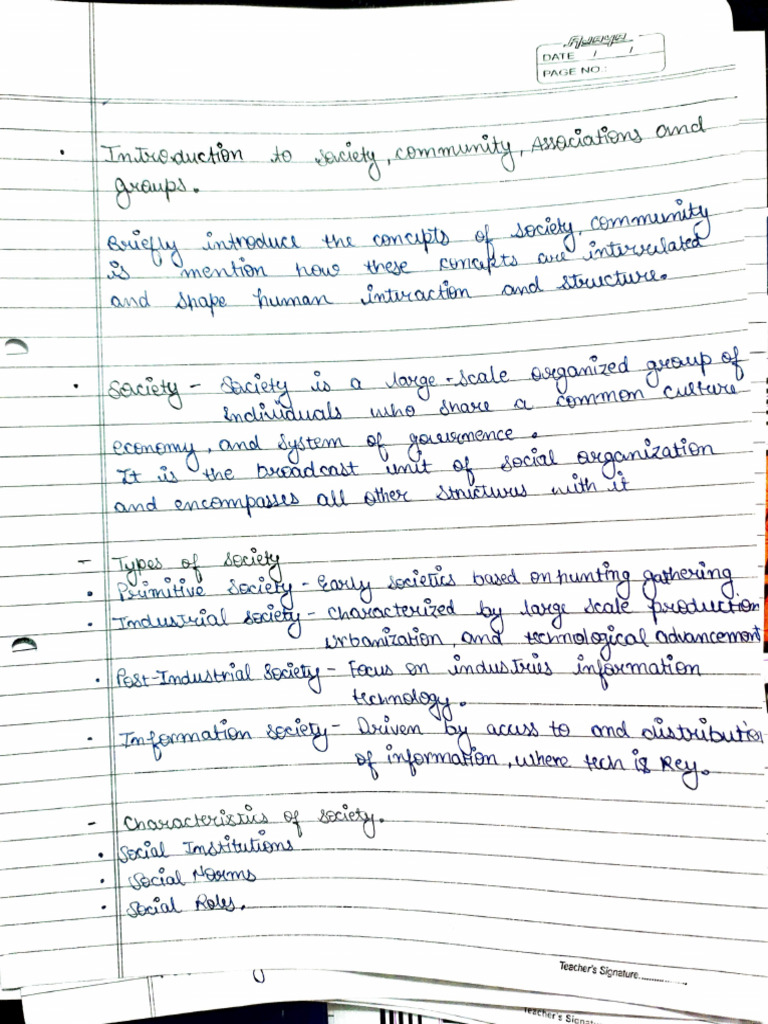 DATE / /
PAGE NO.:
• Introduction to society, community, Associations and
groups.
Briefly introduce the concepts of society, community
is mention how these concepts are interrelated
and shape human interaction and structure.
• Society - Society is a large-scale organized group of
individuals who share a common culture
economy, and system of governence.
It is the broadcast unit of social organization
and encompasses all other structures with it
- Types of society
• Primitive Society - Early societies based on hunting gathering
• Industrial society - Characterized by large scale production
urbanization, and technological advancement
• Post-Industrial Society - Focus on industries information
technology.
• Information society - Driven by access to and distribution
of information, where tech is key.
- Characteristics of society.
• Social Institutions
• Social Norms
• Social Roles.
Teacher's Signature..............